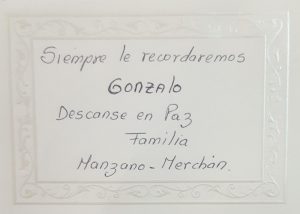 Siempre le recordaremos
GONZALO
Descanse en Paz
Familia
Manzano - Merchán.